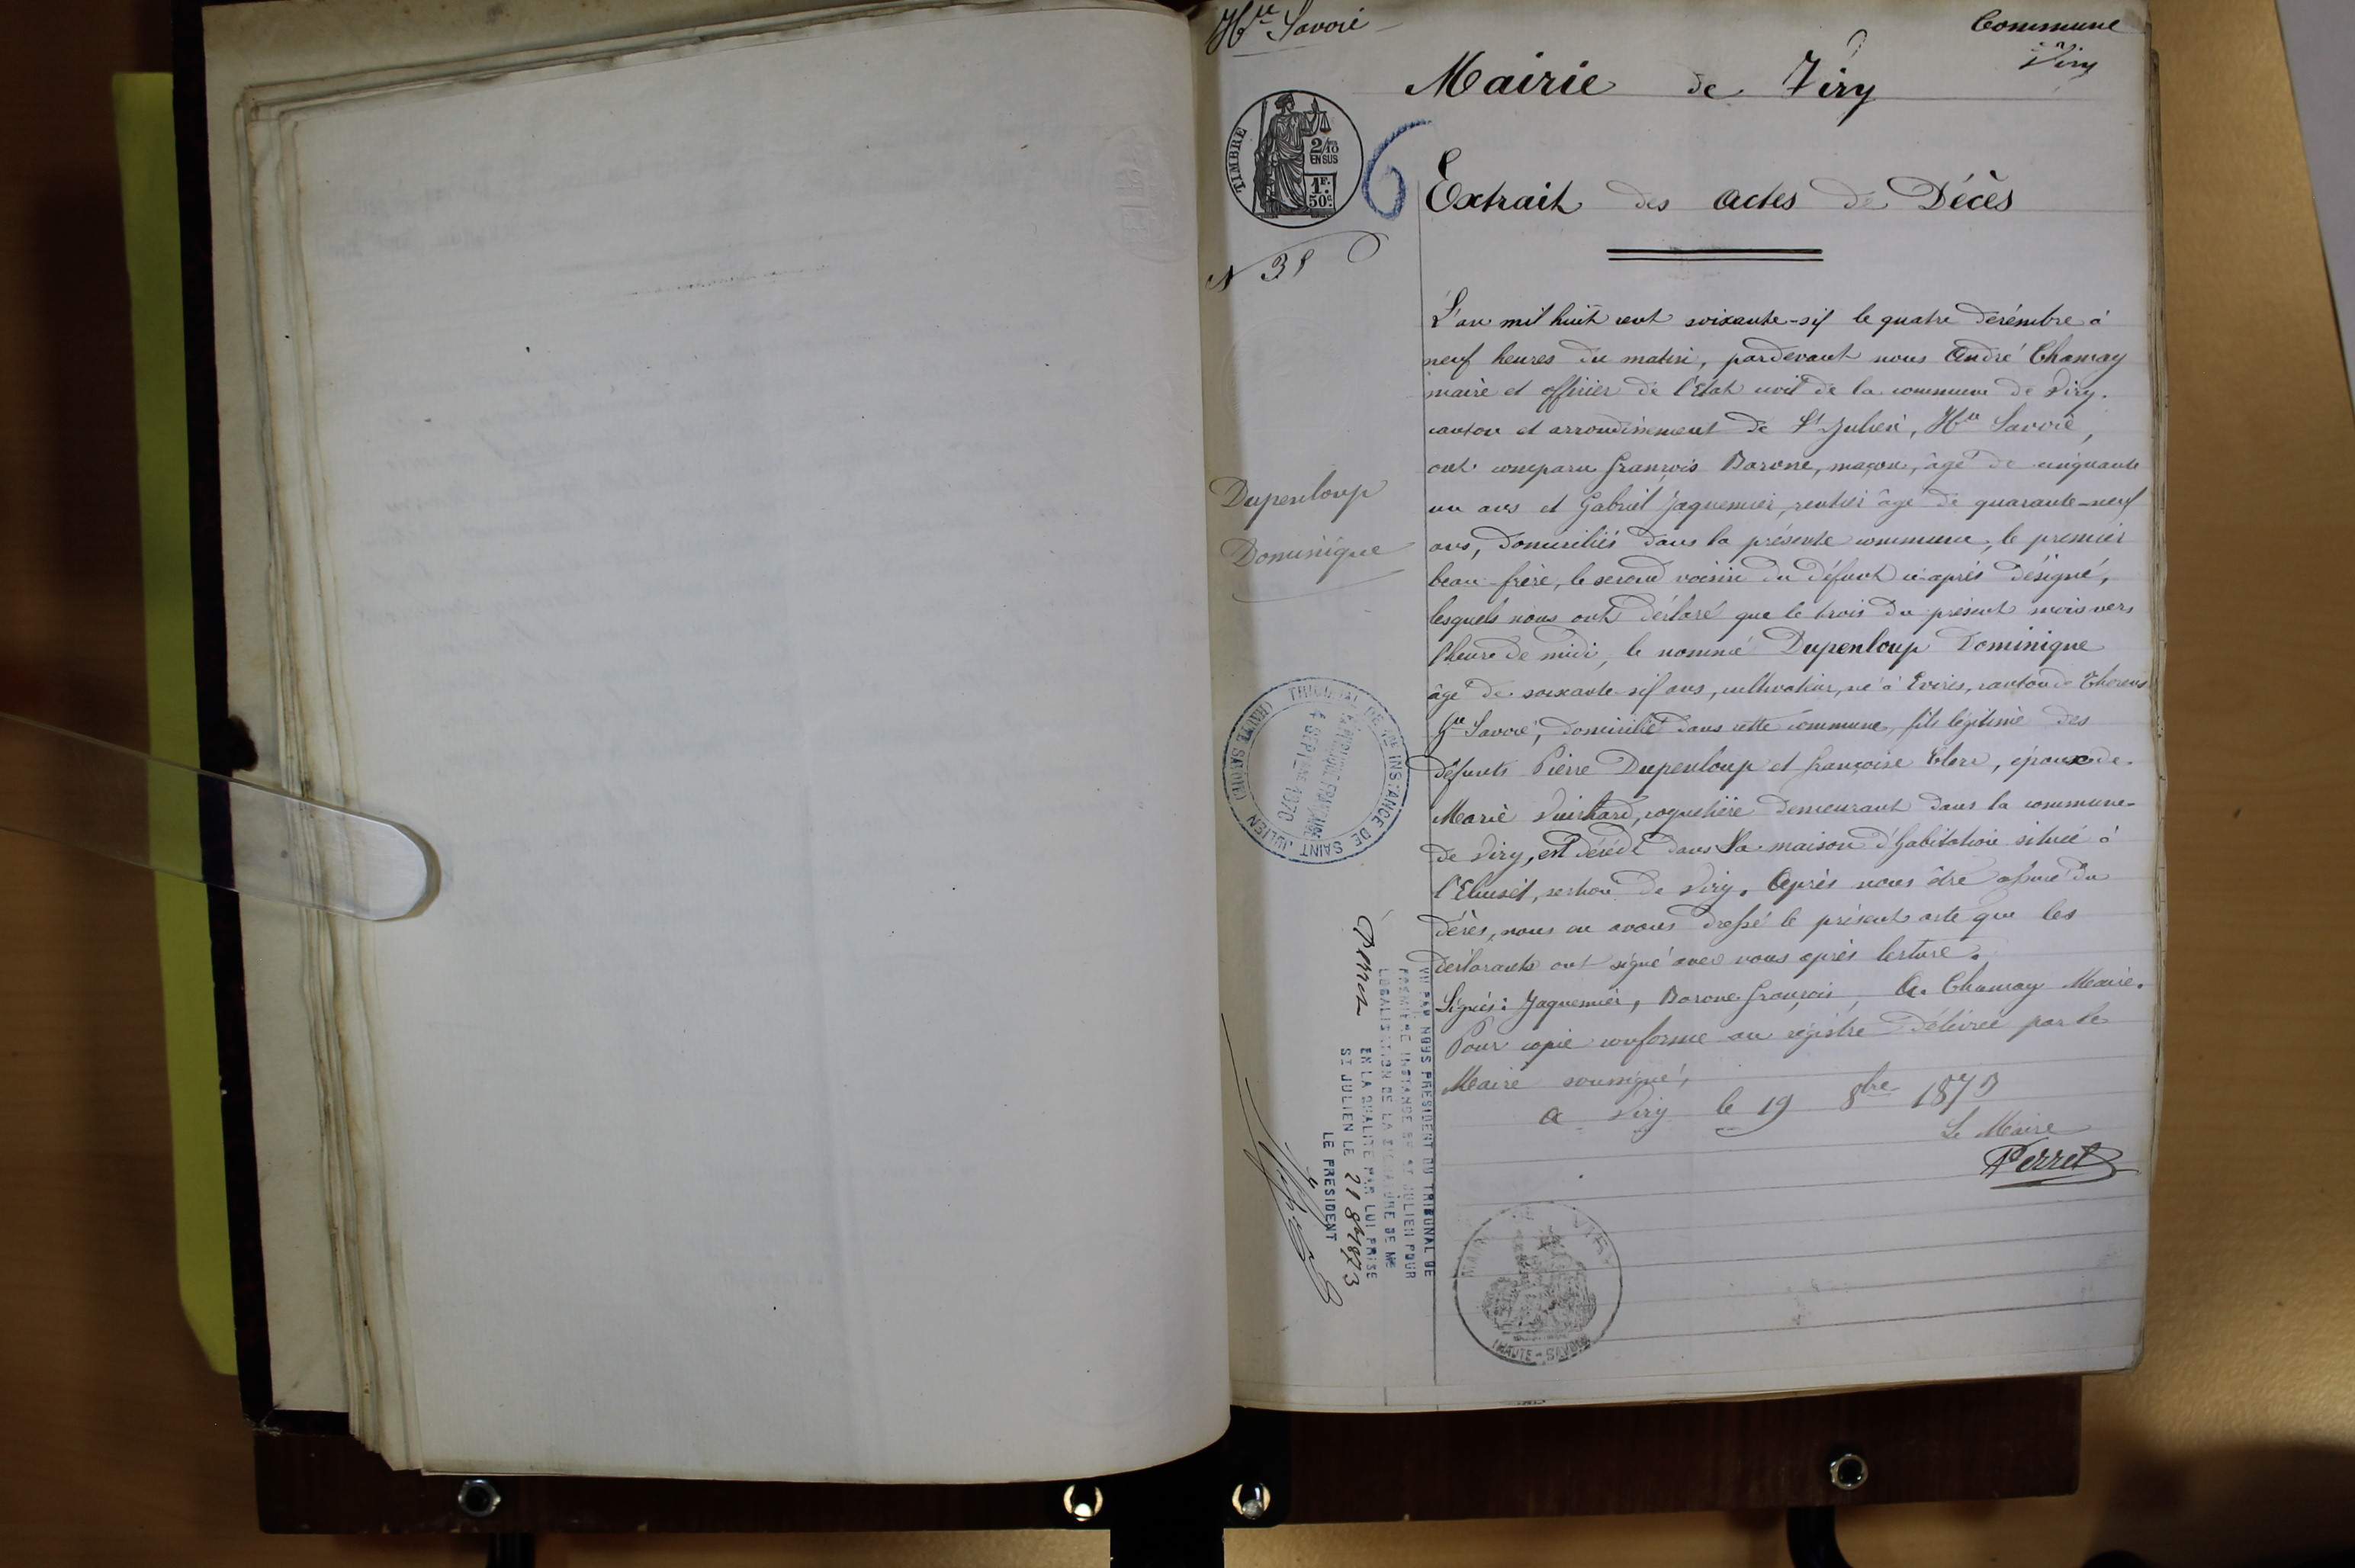 Hte Savoie
Commune
Viry
Mairie de Viry
TIMBRE
2/10
EN SUS
1F.
50c
6
Extrait des actes de Décès
N 38
L'an mil huit cent soixante-six le quatre décembre à
neuf heures du matin, pardevant nous André Chamay
maire et officier de l'Etat civil de la commune de Viry.
canton et arrondissement de St Julien, Hte Savoie,
ont comparu François Barone, maçon, âgé de cinquante
un ans et Gabriel Jaquemier, rentier âgé de quarante-neuf
ans, domiciliés dans la présente commune, le premier
beau-frère, le second voisin du défunt ci-après désigné,
lesquels nous ont déclaré que le trois du présent mois vers
l'heure de midi, le nommé Dupenloup Dominique
âgé de soixante-six ans, cultivateur, né à Evires, canton de Thorens
Hte Savoie, domicilié dans cette commune, fils légitime des
défunts Pierre Dupenloup et françoise, époux de
Marie, coquetière demeurant dans la commune
de Viry, est décédé dans sa maison d'habitation située à
l'Eluiset, section de Viry. Après nous être assuré du
décès, nous en avons dressé le présent acte que les
déclarants ont signé avec nous après lecture.
Signés: Jaquemier, Barone françois, A. Chamay Maire.
Pour copie conforme au registre Délivrée par le
Maire soussigné,
a Viry le 19 8bre 1873
Le Maire
Perret
Dupenloup
Dominique
TRIBUNAL DE 1RE INSTANCE DE SAINT JULIEN (HAUTE SAVOIE)
REPUBLIQUE FRANCAISE
4 SEPTEMB. 1870
VU PAR NOUS PRESIDENT DU TRIBUNAL DE
PREMIERE INSTANCE DE ST JULIEN POUR
LEGALISATION DE LA SIGNATURE DE MR
Perret EN LA QUALITE PAR LUI PRISE
ST JULIEN LE 21 8bre 1873
LE PRESIDENT
MAIRIE DE VIRY
HAUTE-SAVOIE